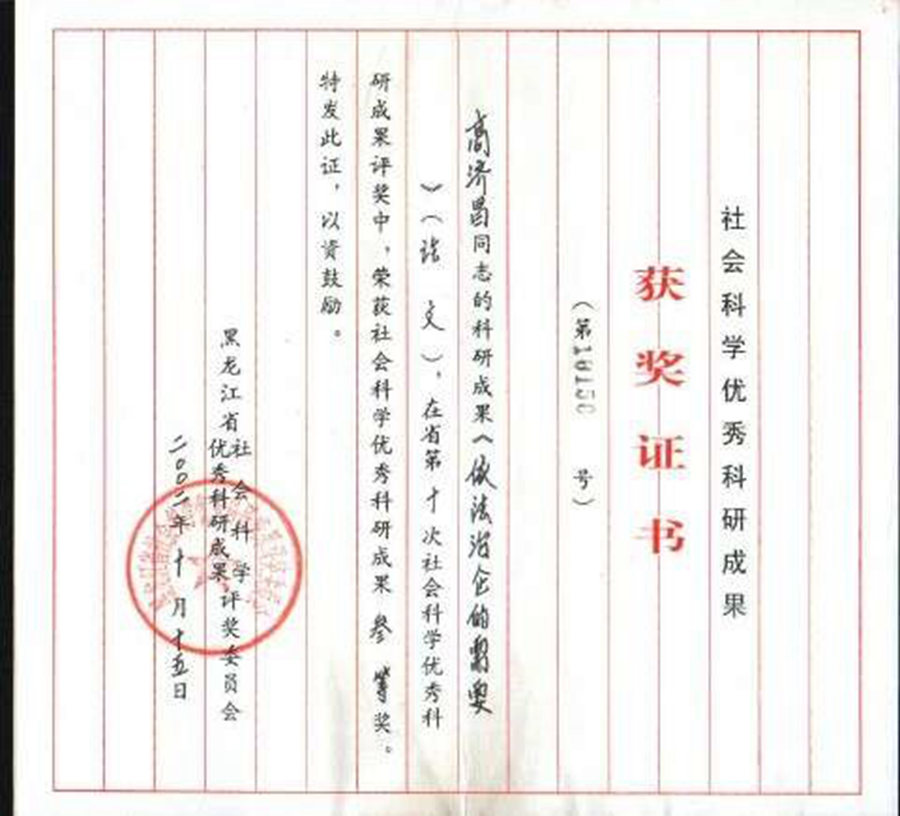 社会科学优秀科研成果
获奖证书
（第10150号）
高济昌同志的科研成果《依法治企的
》（论文），在省第十次社会科学优秀科
研成果评奖中，荣获社会科学优秀科研成果叁等奖。
特发此证，以资鼓励。
黑龙江省社会科学
优秀科研成果评奖委员会
二〇〇二年十月十五日